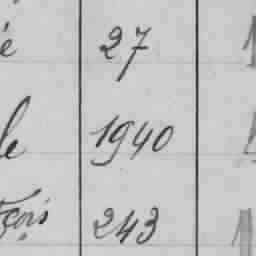 é 27
le 1940
çois 243